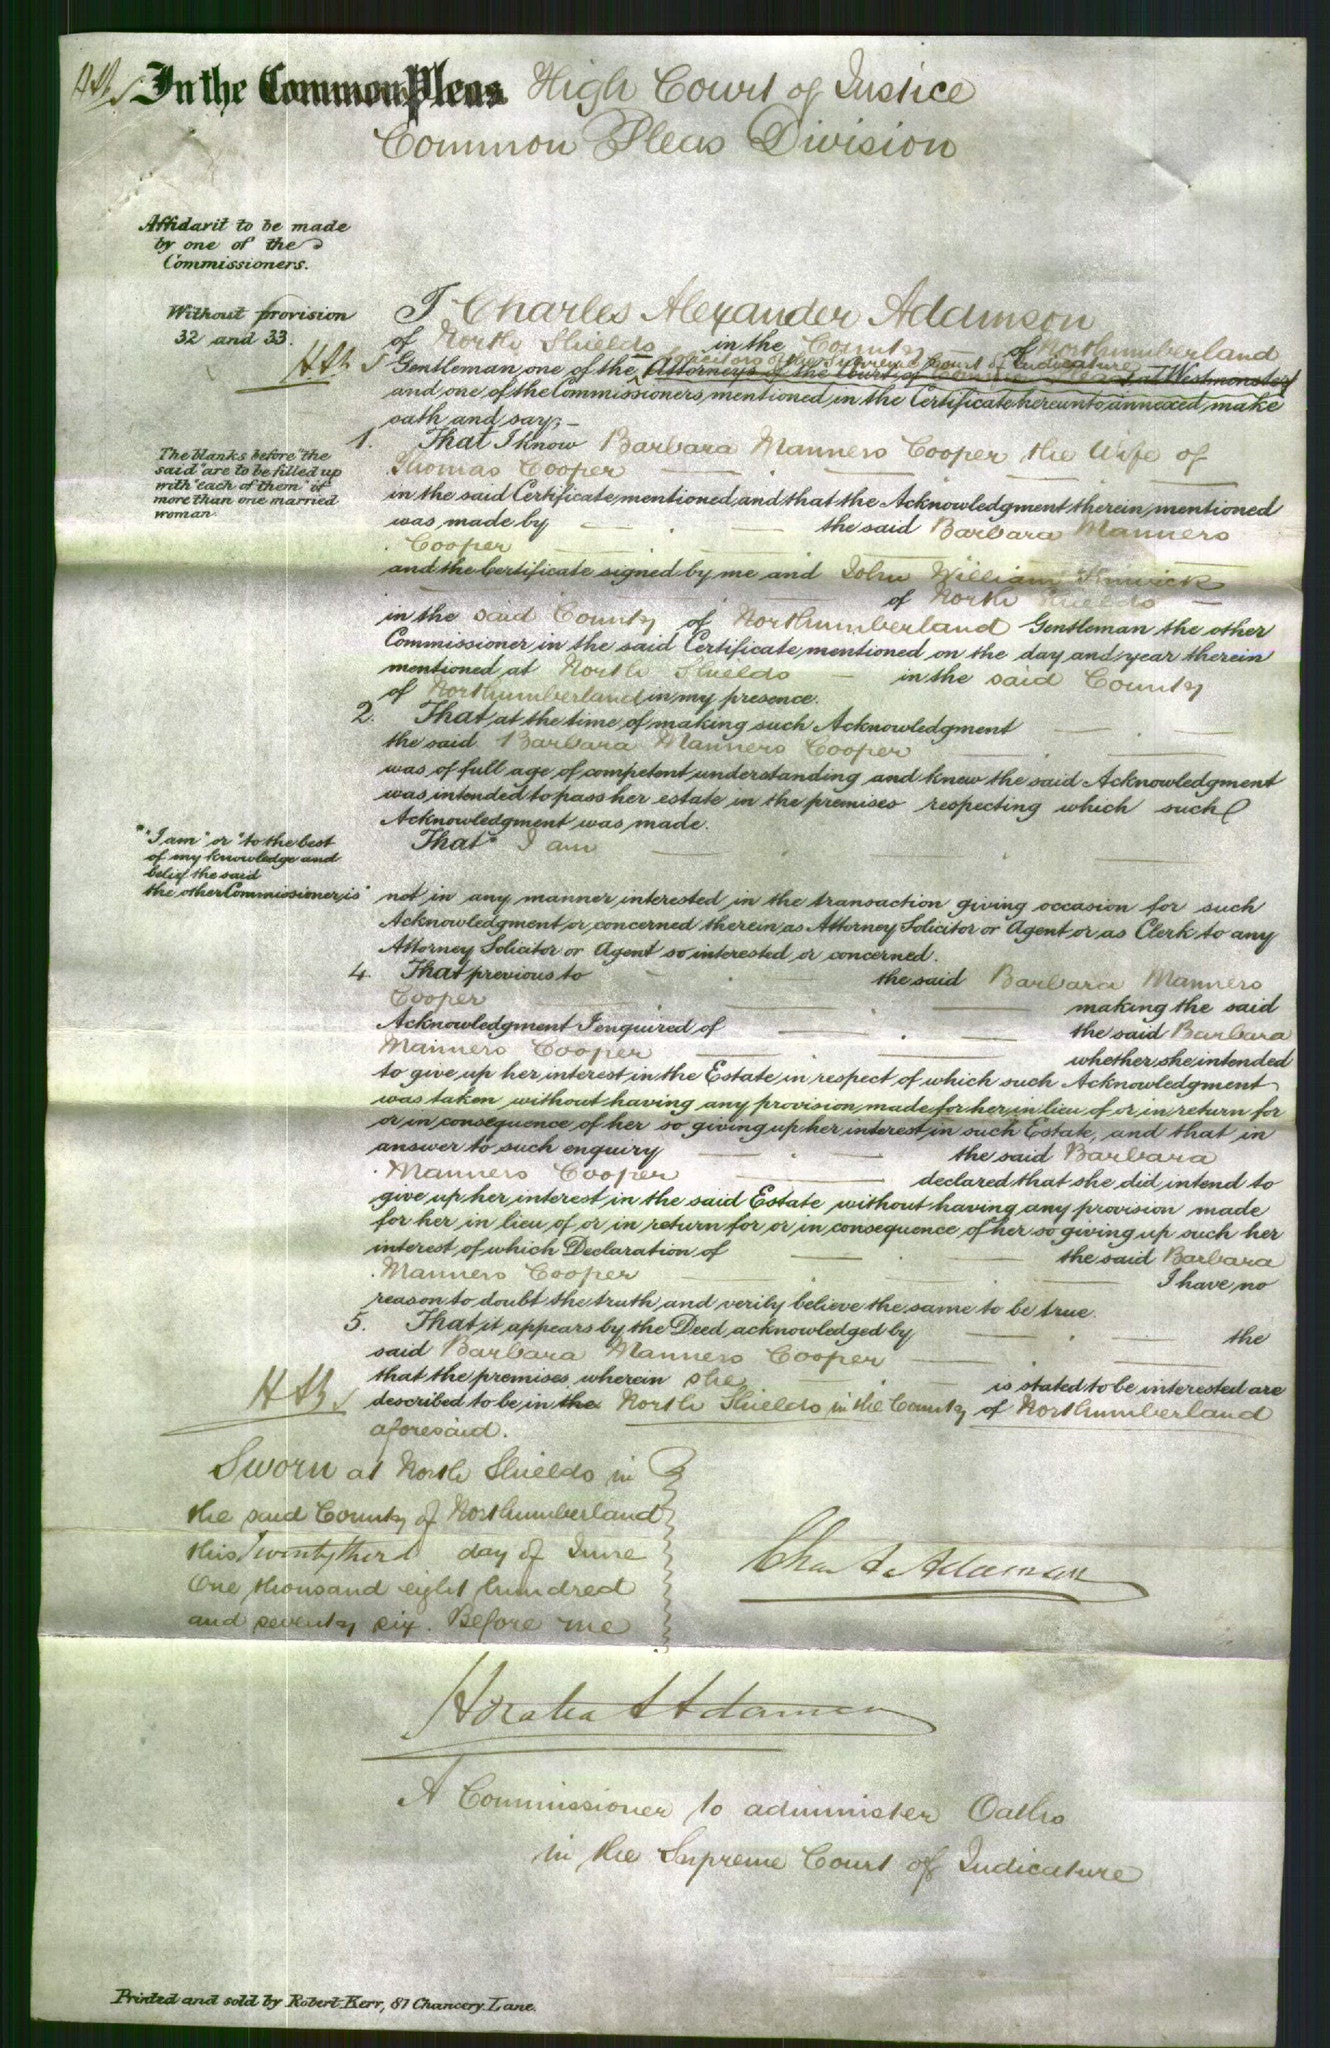 In the Common Pleas High Court of Justice
Common Pleas Division
Affidavit to be made
by one of the
Commissioners.
Without provision
32 and 33.
I Charles Alexander Adamson
of North Shields in the County of Northumberland
Solicitors of the Supreme Court of Judicature
Gentleman one of the Attorneys of the Court of Common Pleas at Westminster
and one of the Commissioners mentioned in the Certificate hereunto annexed make
oath and say,—
1. That I know Barbara Manners Cooper the Wife of
Thomas Cooper
The blanks before "the
said" are to be filled up
with "each of them" if
more than one married
woman.
in the said Certificate mentioned and that the Acknowledgment therein mentioned
was made by the said Barbara Manners
Cooper
and the Certificate signed by me and John William
of North Shields
in the said County of Northumberland Gentleman the other
Commissioner in the said Certificate mentioned on the day and year therein
mentioned at North Shields in the said County
of Northumberland in my presence.
2. That at the time of making such Acknowledgment
the said Barbara Manners Cooper
was of full age of competent understanding and knew the said Acknowledgment
was intended to pass her estate in the premises respecting which such
Acknowledgment was made.
*"I am" or "to the best
of my knowledge and
belief the said
the other Commissioner, is"
That* I am
not in any manner interested in the transaction giving occasion for such
Acknowledgment or concerned therein as Attorney Solicitor or Agent or as Clerk to any
Attorney Solicitor or Agent so interested or concerned.
4. That previous to the said Barbara Manners
Cooper making the said
Acknowledgment I enquired of the said Barbara
Manners Cooper whether she intended
to give up her interest in the Estate in respect of which such Acknowledgment
was taken without having any provision made for her in lieu of or in return for
or in consequence of her so giving up her interest in such Estate, and that in
answer to such enquiry the said Barbara
Manners Cooper declared that she did intend to
give up her interest in the said Estate without having any provision made
for her in lieu of or in return for or in consequence of her so giving up such her
interest of which Declaration of the said Barbara
Manners Cooper I have no
reason to doubt the truth and verily believe the same to be true.
5. That it appears by the Deed acknowledged by the
said Barbara Manners Cooper
that the premises wherein she is stated to be interested are
described to be in the North Shields in the County of Northumberland
aforesaid.
Sworn at North Shields in
the said County of Northumberland
this Twenty third day of June
One thousand eight hundred
and seventy six. Before me
Chas A. Adamson
Horatio A Adamson
A Commissioner to administer Oaths
in the Supreme Court of Judicature
Printed and sold by Robert Kerr, 87 Chancery Lane.